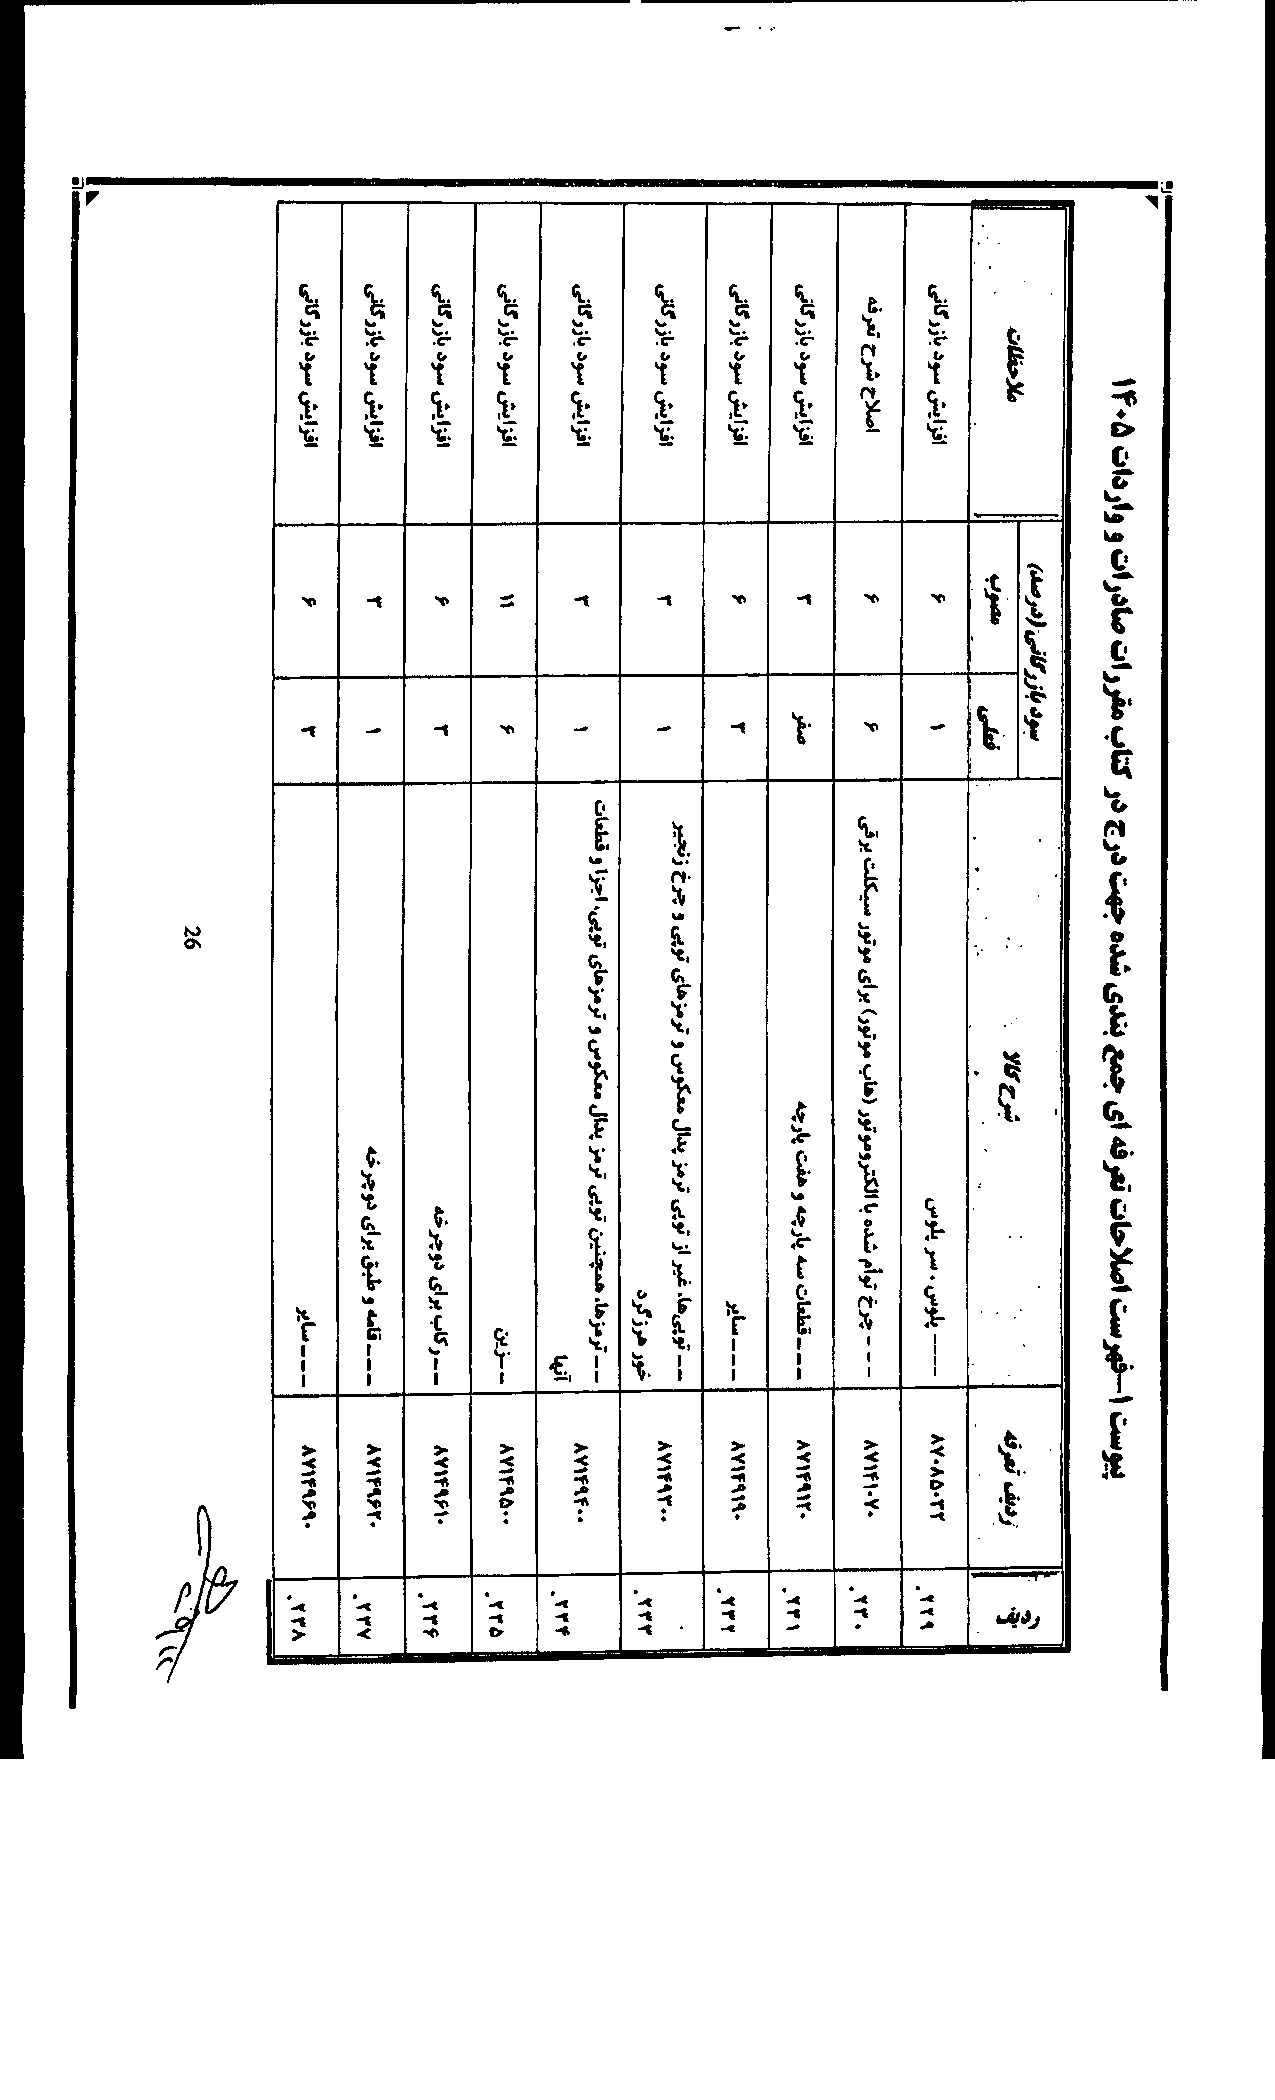 پیوست ۱-فهرست اصلاحات تعرفه ای جمع بندی شده جهت درج در کتاب مقررات صادرات و واردات ۱۴۰۵
ردیف ردیف تعرفه شرح کالا سود بازرگانی (درصد) ملاحظات
فعلی مصوب
۲۲۹. ۸۷۰۸۵۰۲۲ ---- پلوس، سر پلوس ۱ ۶ افزایش سود بازرگانی
۲۳۰. ۸۷۱۴۱۰۷۰ --- چرخ توأم شده با الکتروموتور (هاب موتور) برای موتور سیکلت برقی ۶ ۶ اصلاح شرح تعرفه
۲۳۱. ۸۷۱۴۹۱۲۰ ---قطعات سه پارچه و هفت پارچه صفر ۳ افزایش سود بازرگانی
۲۳۲. ۸۷۱۴۹۱۹۰ ---سایر ۳ ۶ افزایش سود بازرگانی
۲۳۳. ۸۷۱۴۹۳۰۰ -- توپی‌ها، غیر از توپی ترمز پدال معکوس و ترمزهای توپی و چرخ زنجیر
خور هرزگرد ۱ ۳ افزایش سود بازرگانی
۲۳۴. ۸۷۱۴۹۴۰۰ -- ترمزها، همچنین توپی ترمز پدال معکوس و ترمزهای توپی، اجزا و قطعات
آنها ۱ ۳ افزایش سود بازرگانی
۲۳۵. ۸۷۱۴۹۵۰۰ --زین ۶ ۱۱ افزایش سود بازرگانی
۲۳۶. ۸۷۱۴۹۶۱۰ --رکاب برای دوچرخه ۳ ۶ افزایش سود بازرگانی
۲۳۷. ۸۷۱۴۹۶۲۰ ---قامه و طبق برای دوچرخه ۱ ۳ افزایش سود بازرگانی
۲۳۸. ۸۷۱۴۹۶۹۰ ---سایر ۳ ۶ افزایش سود بازرگانی
26